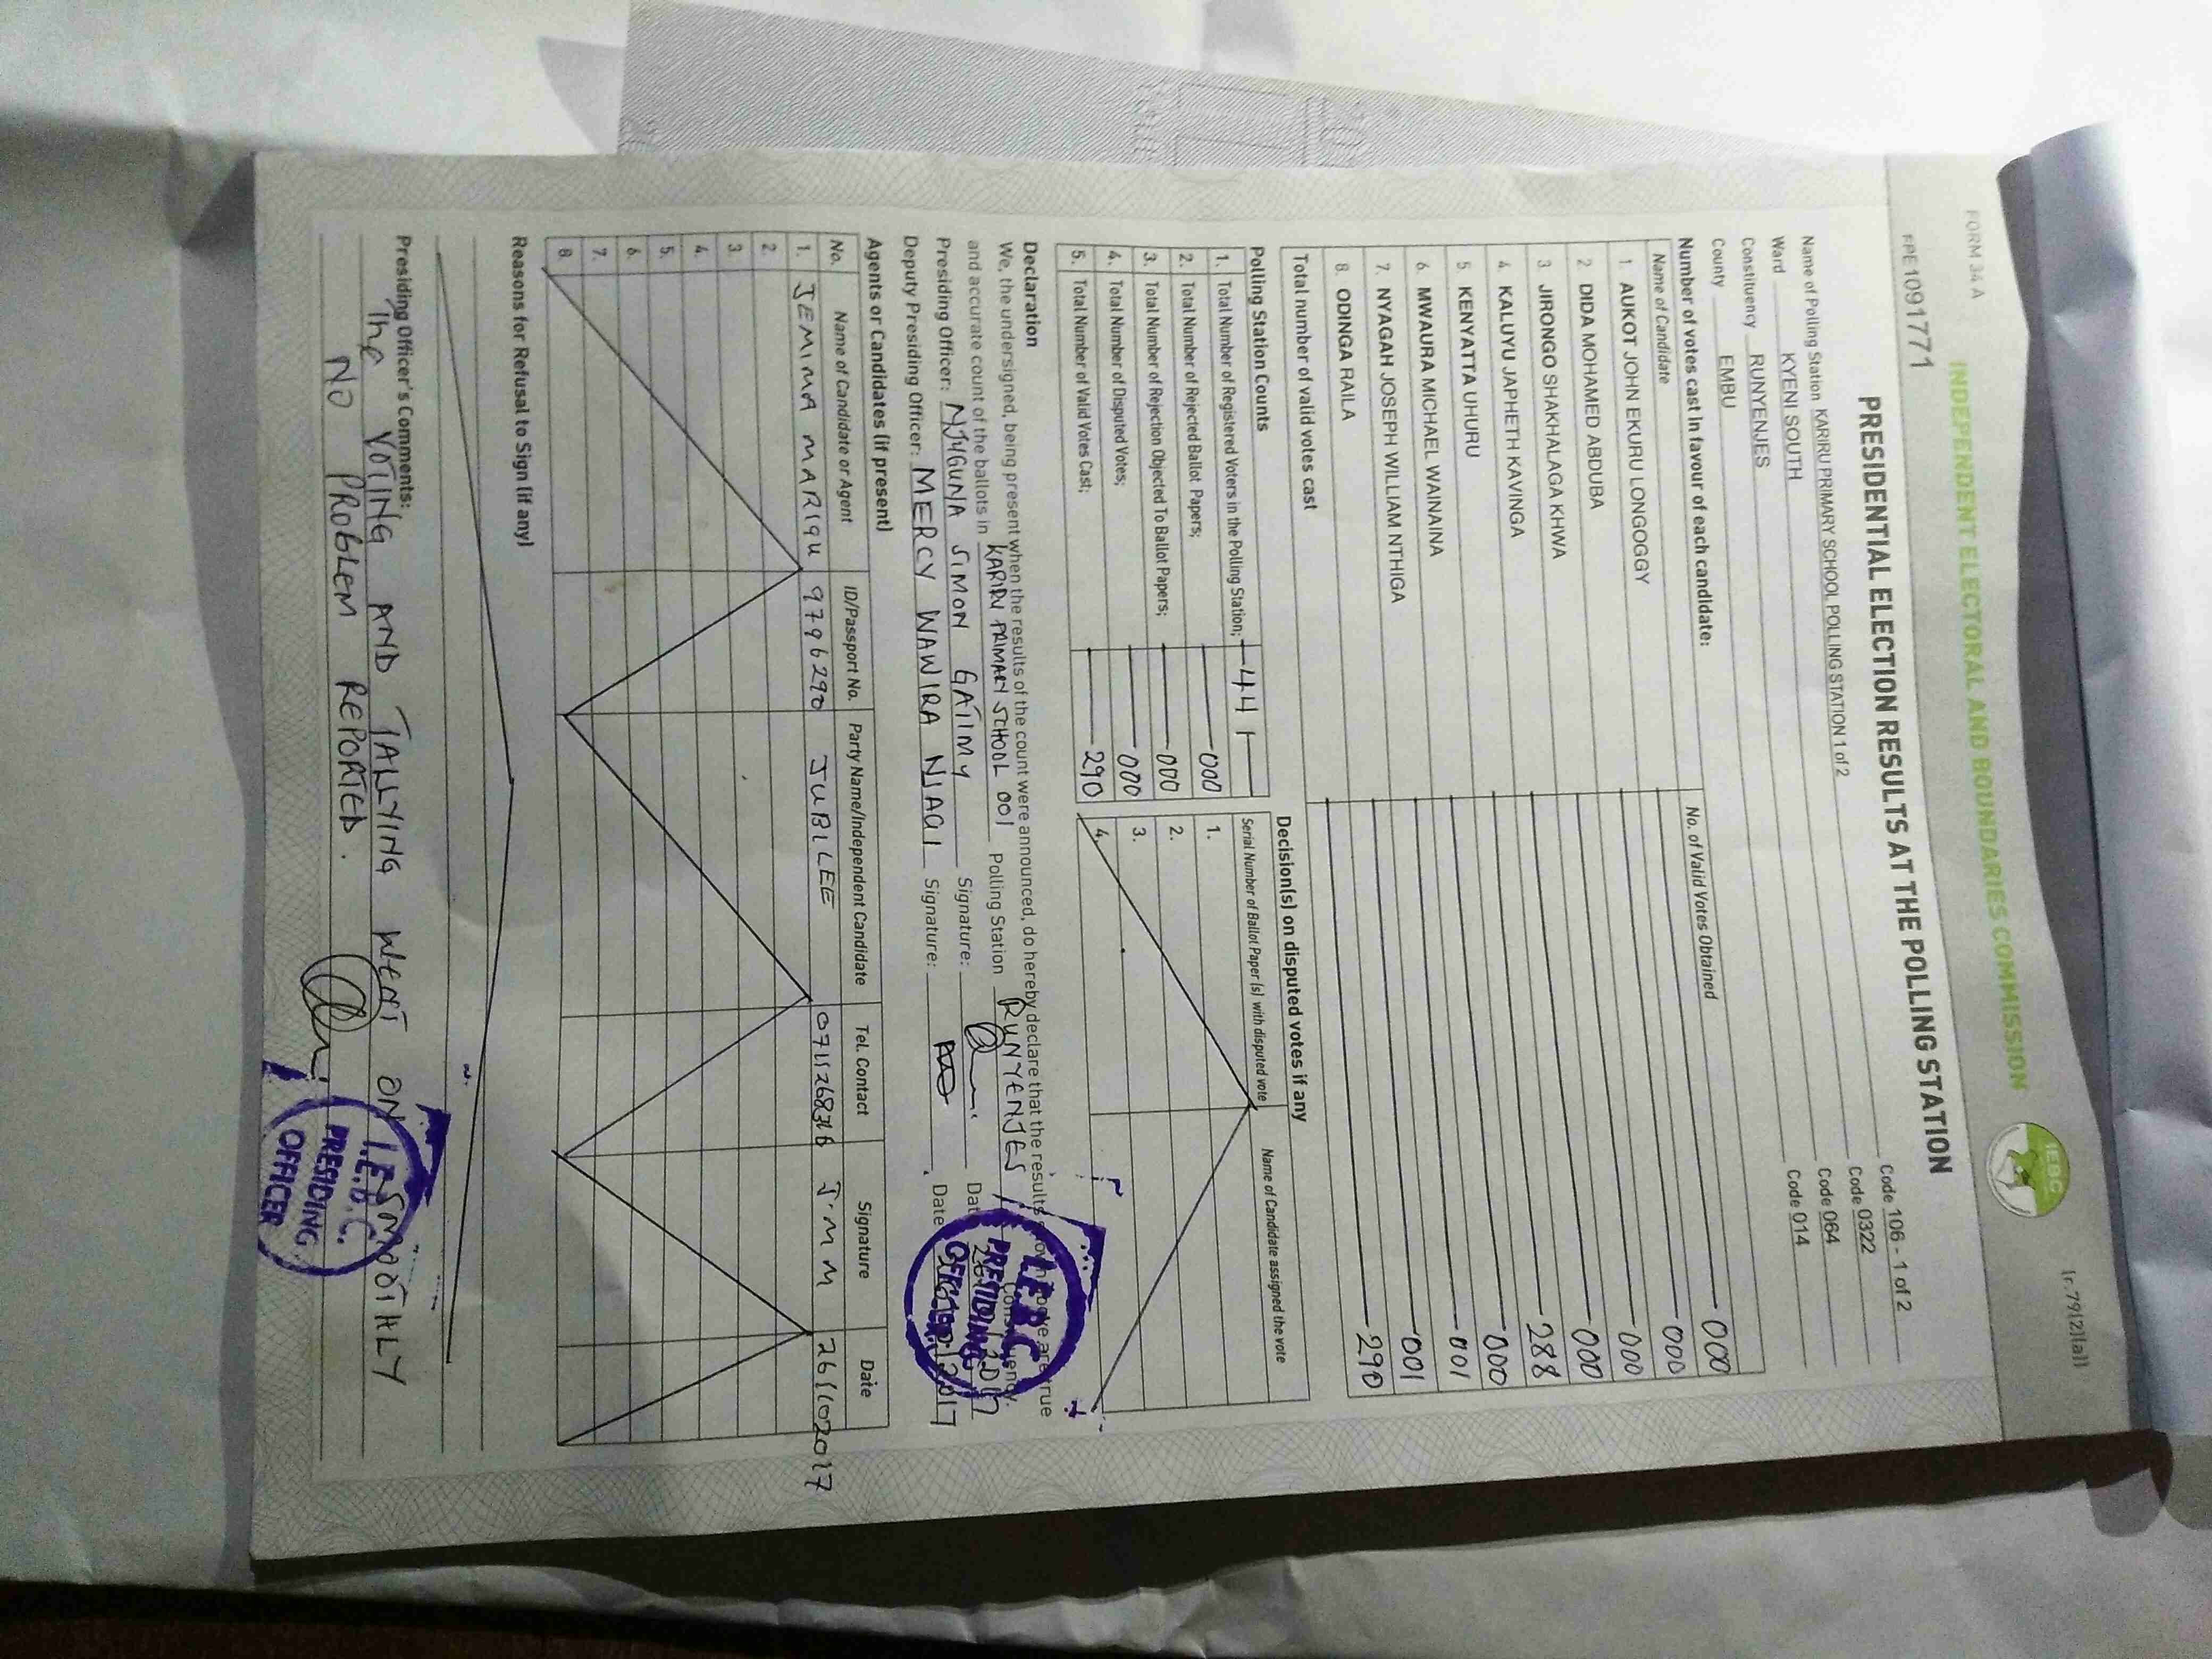 FORM 34 A
(r.79(2)(a))
INDEPENDENT ELECTORAL AND BOUNDARIES COMMISSION
IEBC
FPE1091771
PRESIDENTIAL ELECTION RESULTS AT THE POLLING STATION
Name of Polling Station KARIRU PRIMARY SCHOOL POLLING STATION 1 of 2 Code 106 - 1 of 2
Ward KYENI SOUTH Code 0322
Constituency RUNYENJES Code 064
County EMBU Code 014
Number of votes cast in favour of each candidate:
Name of Candidate No. of Valid Votes Obtained
1. AUKOT JOHN EKURU LONGOGGY 000
2. DIDA MOHAMED ABDUBA 000
3. JIRONGO SHAKHALAGA KHWA 000
4. KALUYU JAPHETH KAVINGA 000
5. KENYATTA UHURU 288
6. MWAURA MICHAEL WAINAINA 000
7. NYAGAH JOSEPH WILLIAM NTHIGA 001
8. ODINGA RAILA 001
Total number of valid votes cast 290
Polling Station Counts
1. Total Number of Registered Voters in the Polling Station; 441
2. Total Number of Rejected Ballot Papers; 000
3. Total Number of Rejection Objected To Ballot Papers; 000
4. Total Number of Disputed Votes; 000
5. Total Number of Valid Votes Cast; 290
Decision(s) on disputed votes if any
Serial Number of Ballot Paper (s) with disputed vote Name of Candidate assigned the vote
1.
2.
3.
4.
Declaration
We, the undersigned, being present when the results of the count were announced, do hereby declare that the results are true
and accurate count of the ballots in KARIRU PRIMARY SCHOOL 001 Polling Station RUNYENJES
Presiding Officer: NJUGUNA SIMON GATIMU Signature: Date
Deputy Presiding Officer: MERCY WAWIRA NJAGI Signature: Date
I.E.B.C.
PRESIDING
OFFICER
Agents or Candidates (if present)
No. Name of Candidate or Agent ID/Passport No. Party Name/Independent Candidate Tel. Contact Signature Date
1. JEMIMA MARIGU 9796290 JUBILEE J.M.M 26/102017
2.
3.
4.
5.
6.
7.
8.
Reasons for Refusal to Sign (if any)
Presiding Officer's Comments:
The VOTING AND TALLYING WENT ON SMOOTHLY
NO PROBLEM REPORTED.
I.E.B.C.
PRESIDING
OFFICER